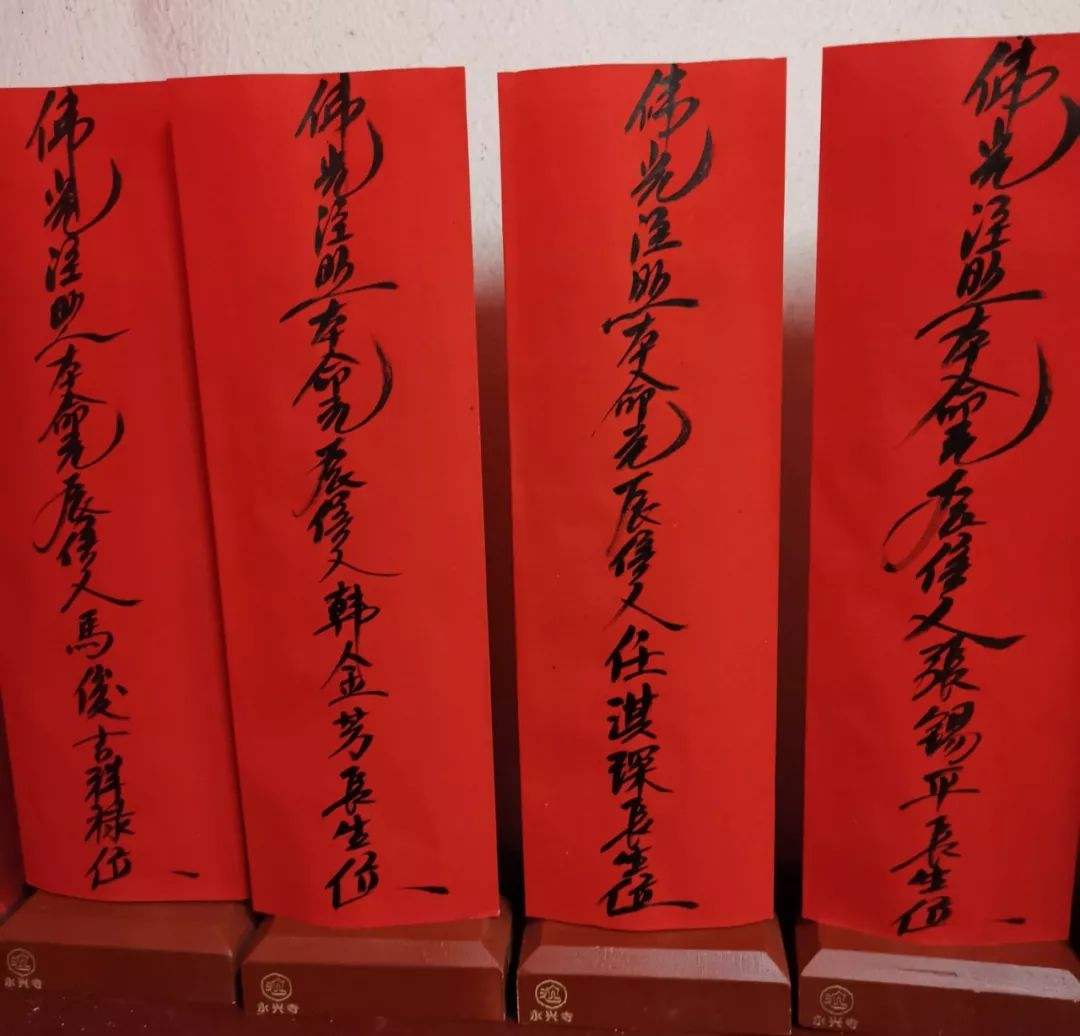 佛光注照本命元辰信人馬俊吉祥祿位
佛光注照本命元辰信人韩金芳長生位
佛光注照本命元辰信人任淇琛長生位
佛光注照本命元辰信人張錫平長生位
永兴寺
永兴寺
永兴寺
永兴寺